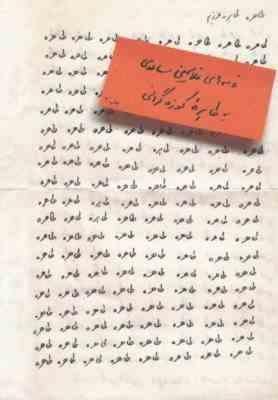 طاهره، طاهره عزیزم
طاهره طاهره طاهره طاهره طاهره طاهره طاهره طاهره
طاهره طاهره طاهره
طاهره طاهره
طاهره طاهره
طاهره طاهره
نامه‌های غلامحسین ساعدی
به طاهره کوزه‌گرانی
طاهره طاهره طاهره طاهره طاهره طاهره طاهره طاهره
طاهره طاهره طاهره طاهره طاهره طاهره طاهره طاهره
طاهره طاهره طاهره طاهره طاهره طاهره طاهره طاهره
طاهره طاهره طاهره طاهره طاهره طاهره طاهره طاهره
طاهره طاهره طاهره طاهره طاهره طاهره طاهره طاهره
طاهره طاهره طاهره طاهره طاهره طاهره طاهره طاهره
طاهره طاهره طاهره طاهره طاهره طاهره طاهره طاهره
طاهره طاهره طاهره طاهره طاهره طاهره طاهره طاهره
طاهره طاهره طاهره طاهره طاهره طاهره طاهره طاهره
طاهره طاهره طاهره طاهره طاهره طاهره طاهره طاهره
طاهره طاهره طاهره طاهره طاهره طاهره طاهره طاهره
طاهره طاهره طاهره طاهره طاهره طاهره طاهره طاهره
طاهره طاهره طاهره طاهره طاهره طاهره طاهره طاهره
طاهره طاهره طاهره طاهره طاهره طاهره طاهره طاهره